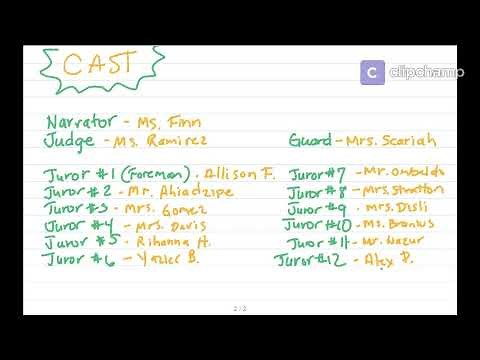 CAST
clipchamp
Narrator - Ms. Finn
Judge - Ms. Ramirez
Guard - Mrs. Scariah
Juror #1 (Foreman) - Allison F.
Juror #2 - Mr. Ahiadzipe
Juror #3 - Mrs. Gomez
Juror #4 - Mrs. Davis
Juror #5 - Rihanna H.
Juror #6 - B.
Juror #7 - Mr.
Juror #8 - Mrs. Stratton
Juror #9 - Mrs. Disli
Juror #10 - Ms.
Juror #11 - Mr. Nazur
Juror #12 - Alex P.
2 / 2